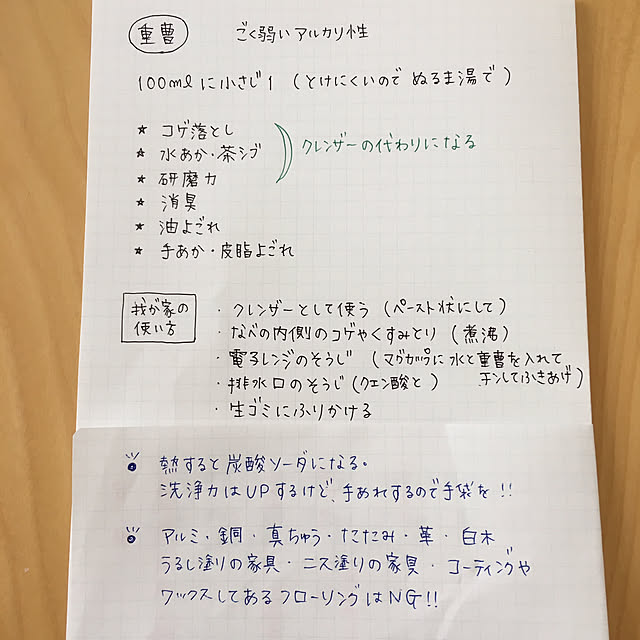 重曹 ごく弱いアルカリ性
100mlに小さじ1 (とけにくいので ぬるま湯で)
★ コゲ落とし
★ 水あか・茶シブ
★ 研磨力
クレンザーの代わりになる
★ 消臭
★ 油よごれ
★ 手あか・皮脂よごれ
我が家の
使い方
・クレンザーとして使う (ペースト状にして)
・なべの内側のコゲやくすみとり (煮沸)
・電子レンジのそうじ (マグカップに水と重曹を入れて
チンしてふきあげ)
・排水口のそうじ (クエン酸と)
・生ゴミにふりかける
熱すると炭酸ソーダになる。
洗浄力はUPするけど、手あれするので手袋を!!
アルミ・銅・真ちゅう・たたみ・革・白木
うるし塗りの家具・ニス塗りの家具・コーティングや
ワックスしてあるフローリングはNG!!